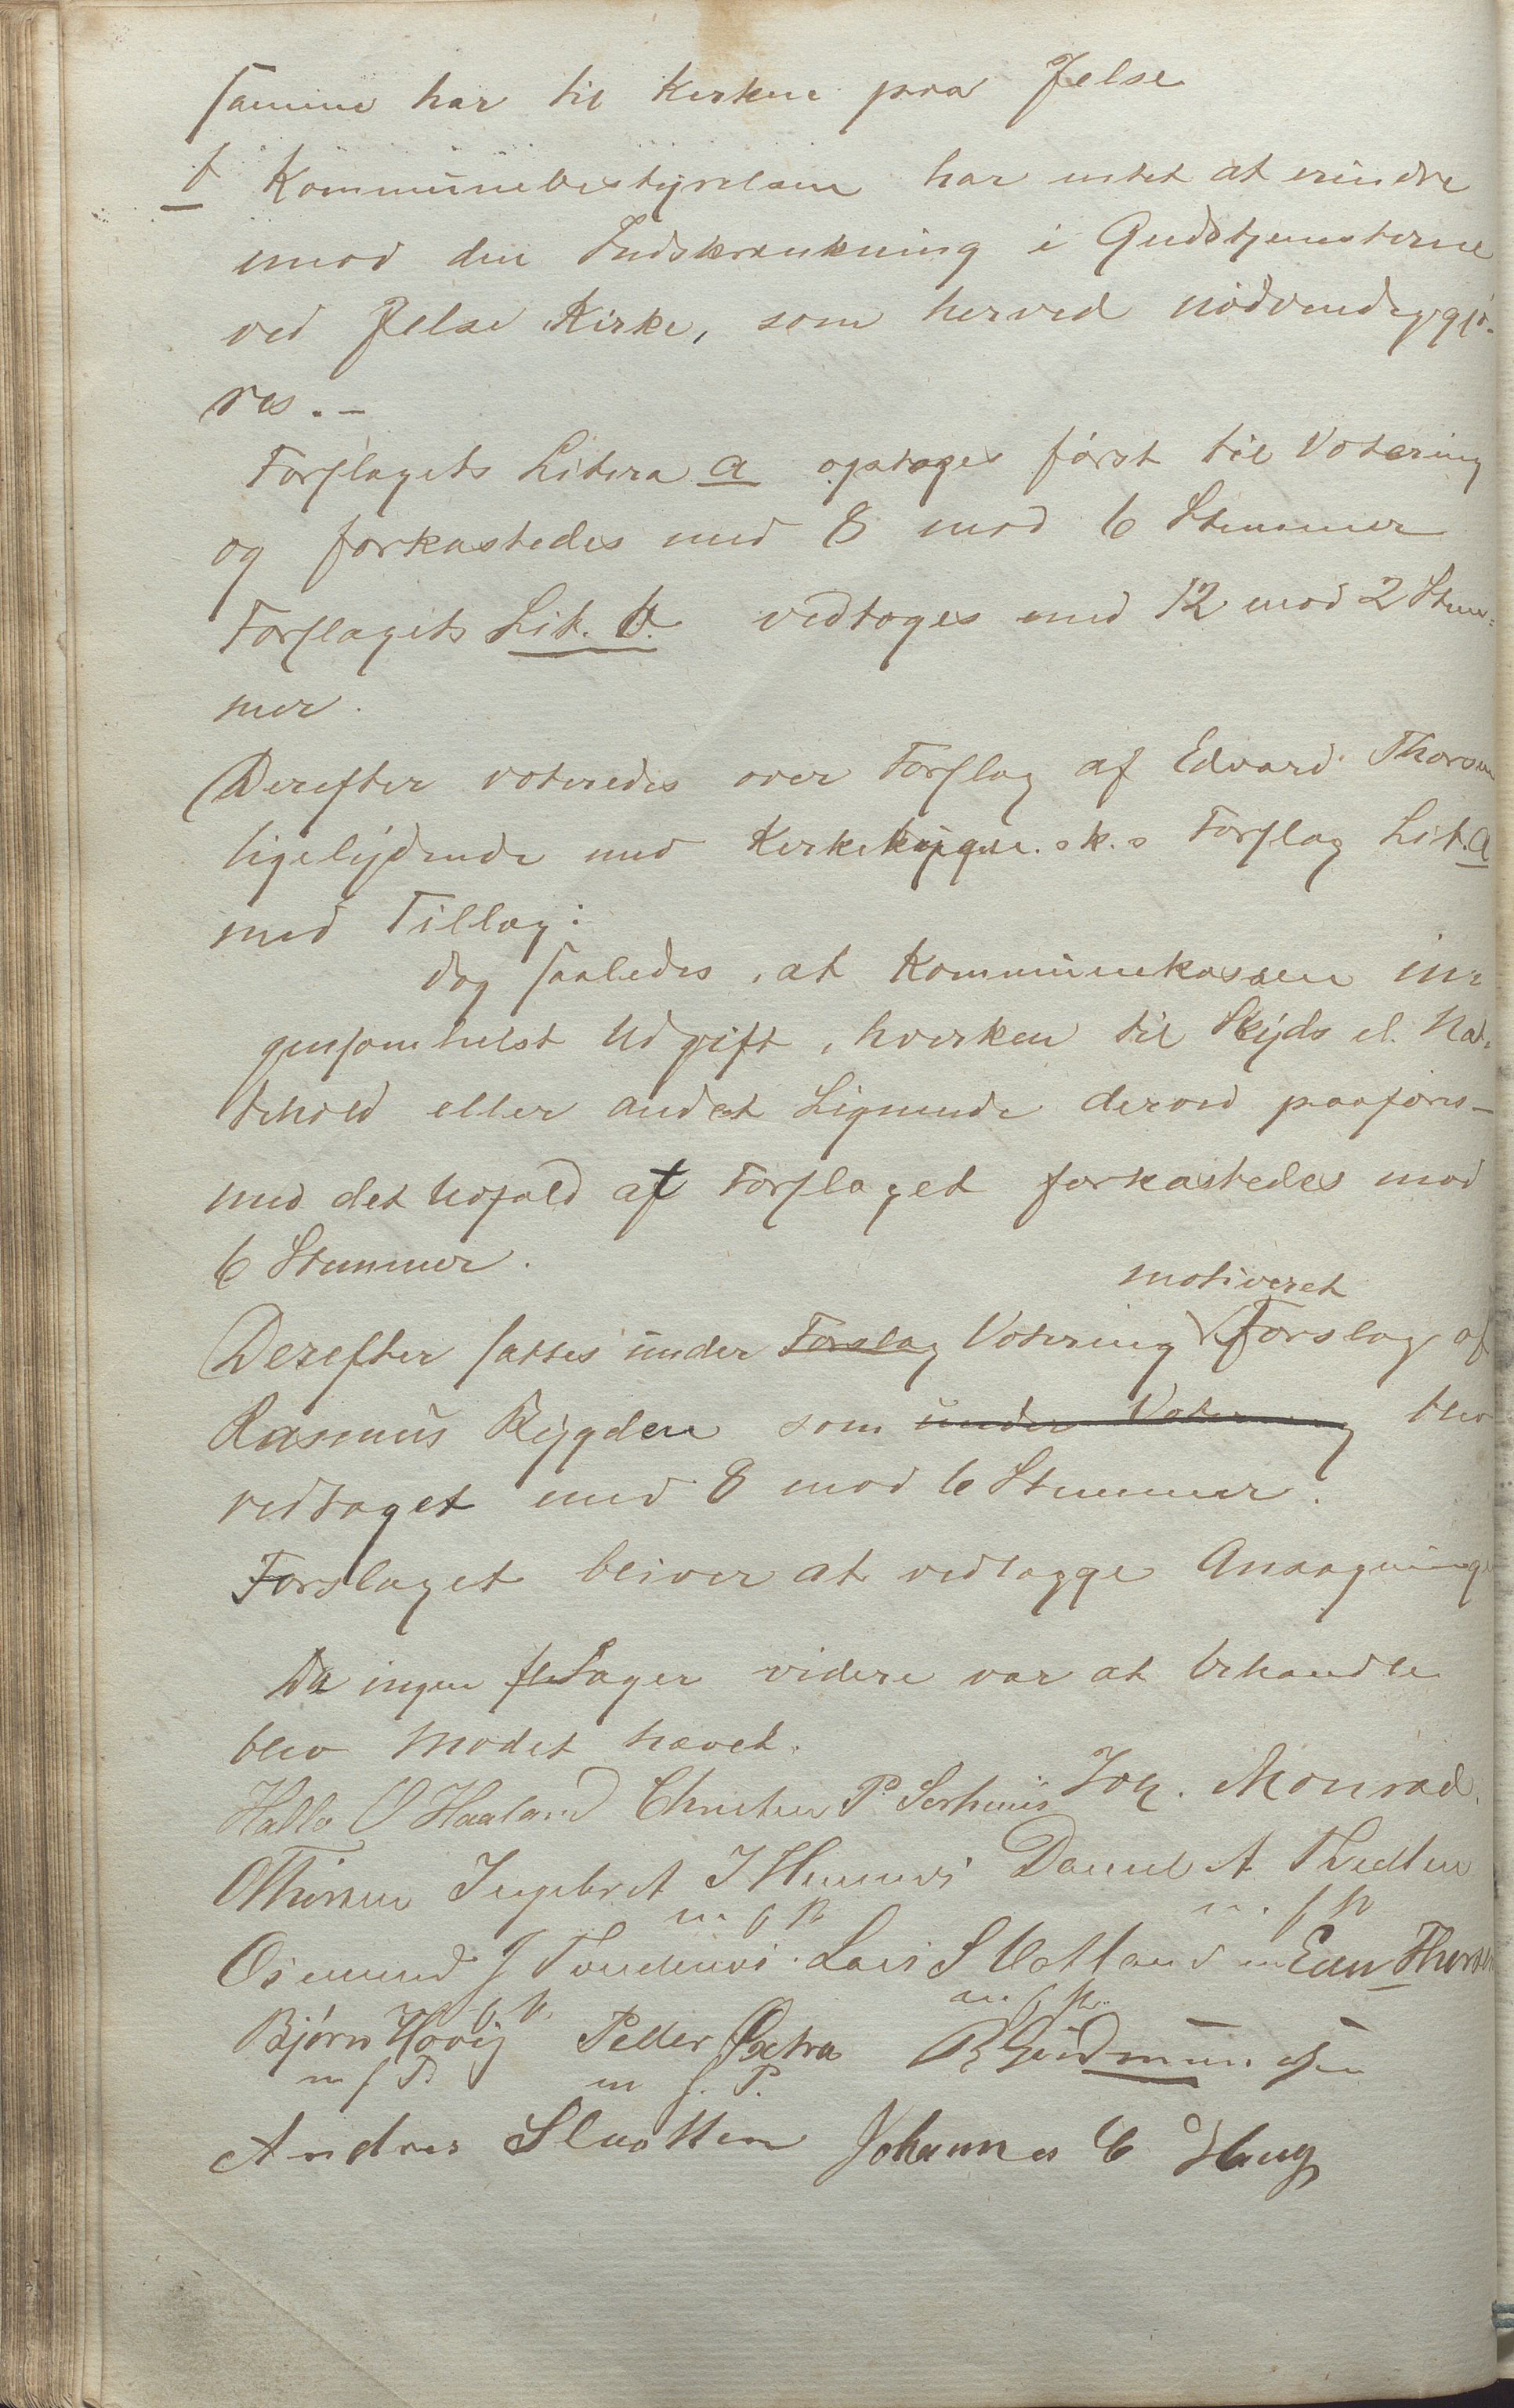 samme har til Kirken paa Jelse
b Kommunebestyrelsen har intet at erindre
imod den Indskrænkning i Gudstjenesterne
ved Jelse Kirke, som herved nødvendiggjø-
res. -
Forslagets Litera a optoges først til Votering
og forkastedes med 8 mod 6 Stemmer
Forslagets Lit. b. vedtoges med 12 mod 2 Stem-
mer.
Derefter voteredes over Forslag af Edvard Thorsen
ligelydende med Forslag Lit. a
med Tillæg:
dog saaledes, at Kommunekassen in-
gensomhelst Udgift, hverken til Skyds el. Nat-
tehold eller andet Lignende derved paaføres -
med det Udfald at Forslaget forkastedes mod
6 Stemmer.
motiveret
Derefter sattes under Forslag Votering Forslag af
Rasmus Rygden som under Votering blev
vedtaget med 8 mod 6 Stemmer.
Forslaget bliver at vedlægge Ansøgning
Da ingen Sager videre var at behandle
blev Mødet hævet.
O Haaland P. Joh. Monrad.
Ingebret Daniel A
m f P m. f P
Osmund J Lars S m Edv Thorsen
f P. m f P.
Bjørn Hovig Peder R Gudmundsen
m f P. m f. P.
Andres Johannes E Haug